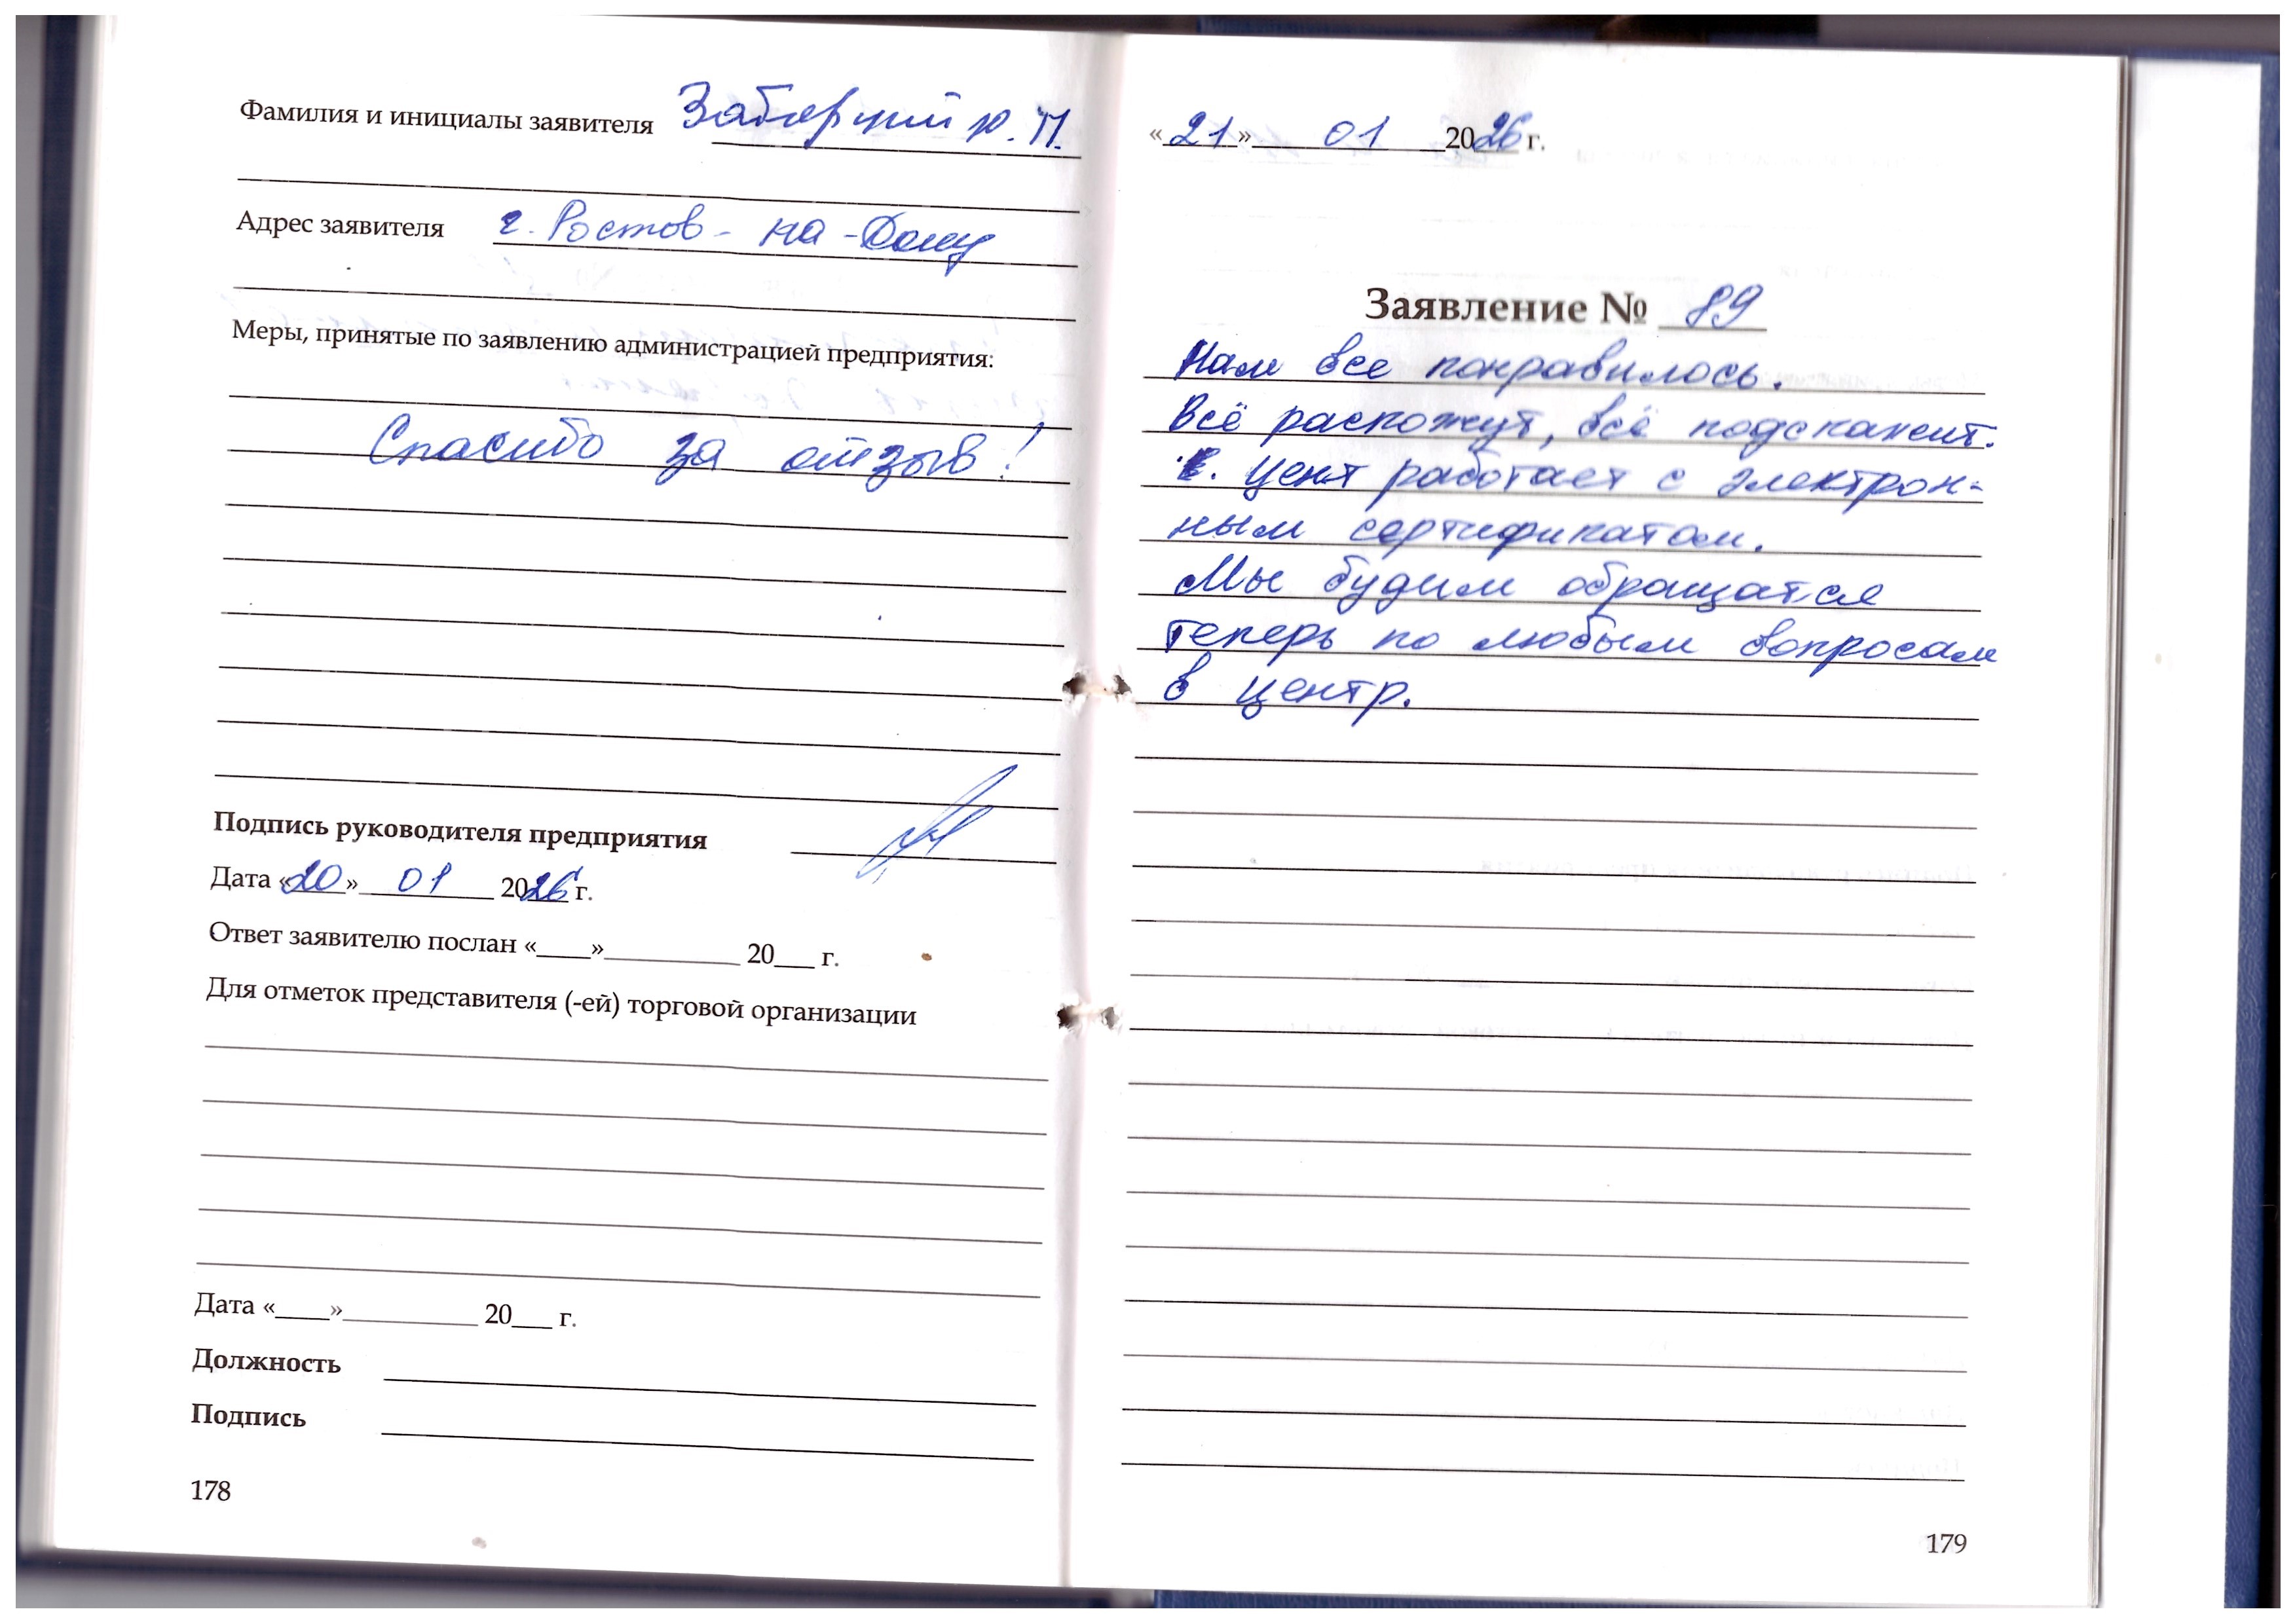 Фамилия и инициалы заявителя Ю. П.
Адрес заявителя г. Ростов-на-Дону
Меры, принятые по заявлению администрацией предприятия:
Спасибо за отзыв!
Подпись руководителя предприятия
Дата «20» 01 2026 г.
Ответ заявителю послан «____»__________ 20___ г.
Для отметок представителя (-ей) торговой организации
Дата «____»__________ 20___ г.
Должность
Подпись
178
«21» 01 2026 г.
Заявление № 89
Нам все понравилось.
Всё раскожут, всё подскажит.
Цент работает с электрон-
ным сертификатом.
Мы будим обращатся
теперь по любым вопросам
в центр.
179